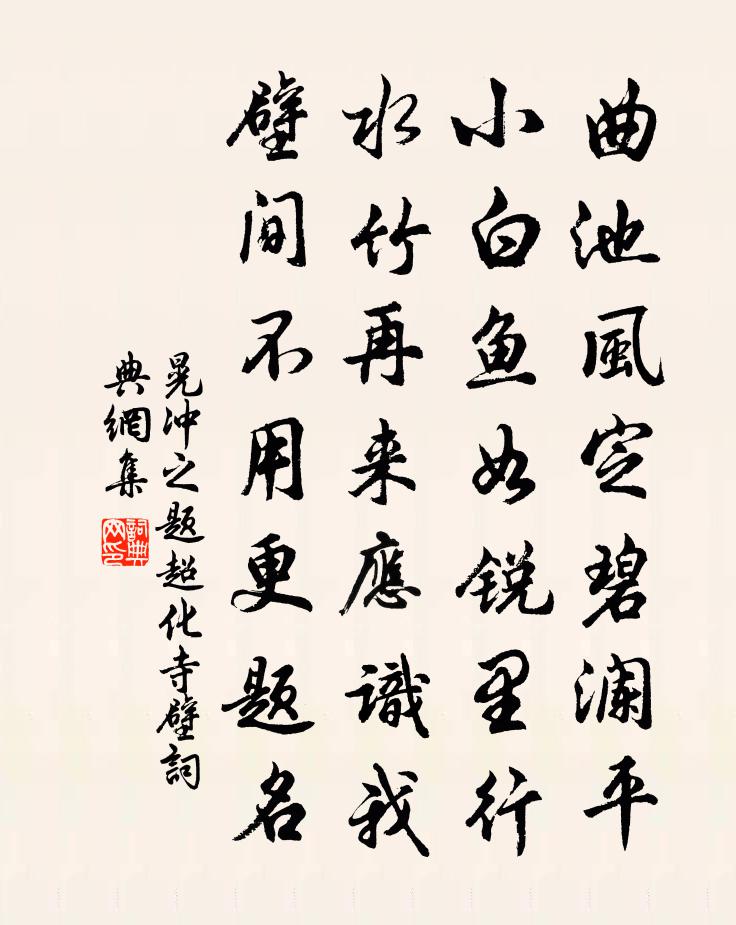 曲池風定碧瀾平
小白鱼如锐里行
水竹再来應識我
壁间不用更题名
晁冲之题超化寺壁詞
典網集
詞典
网印